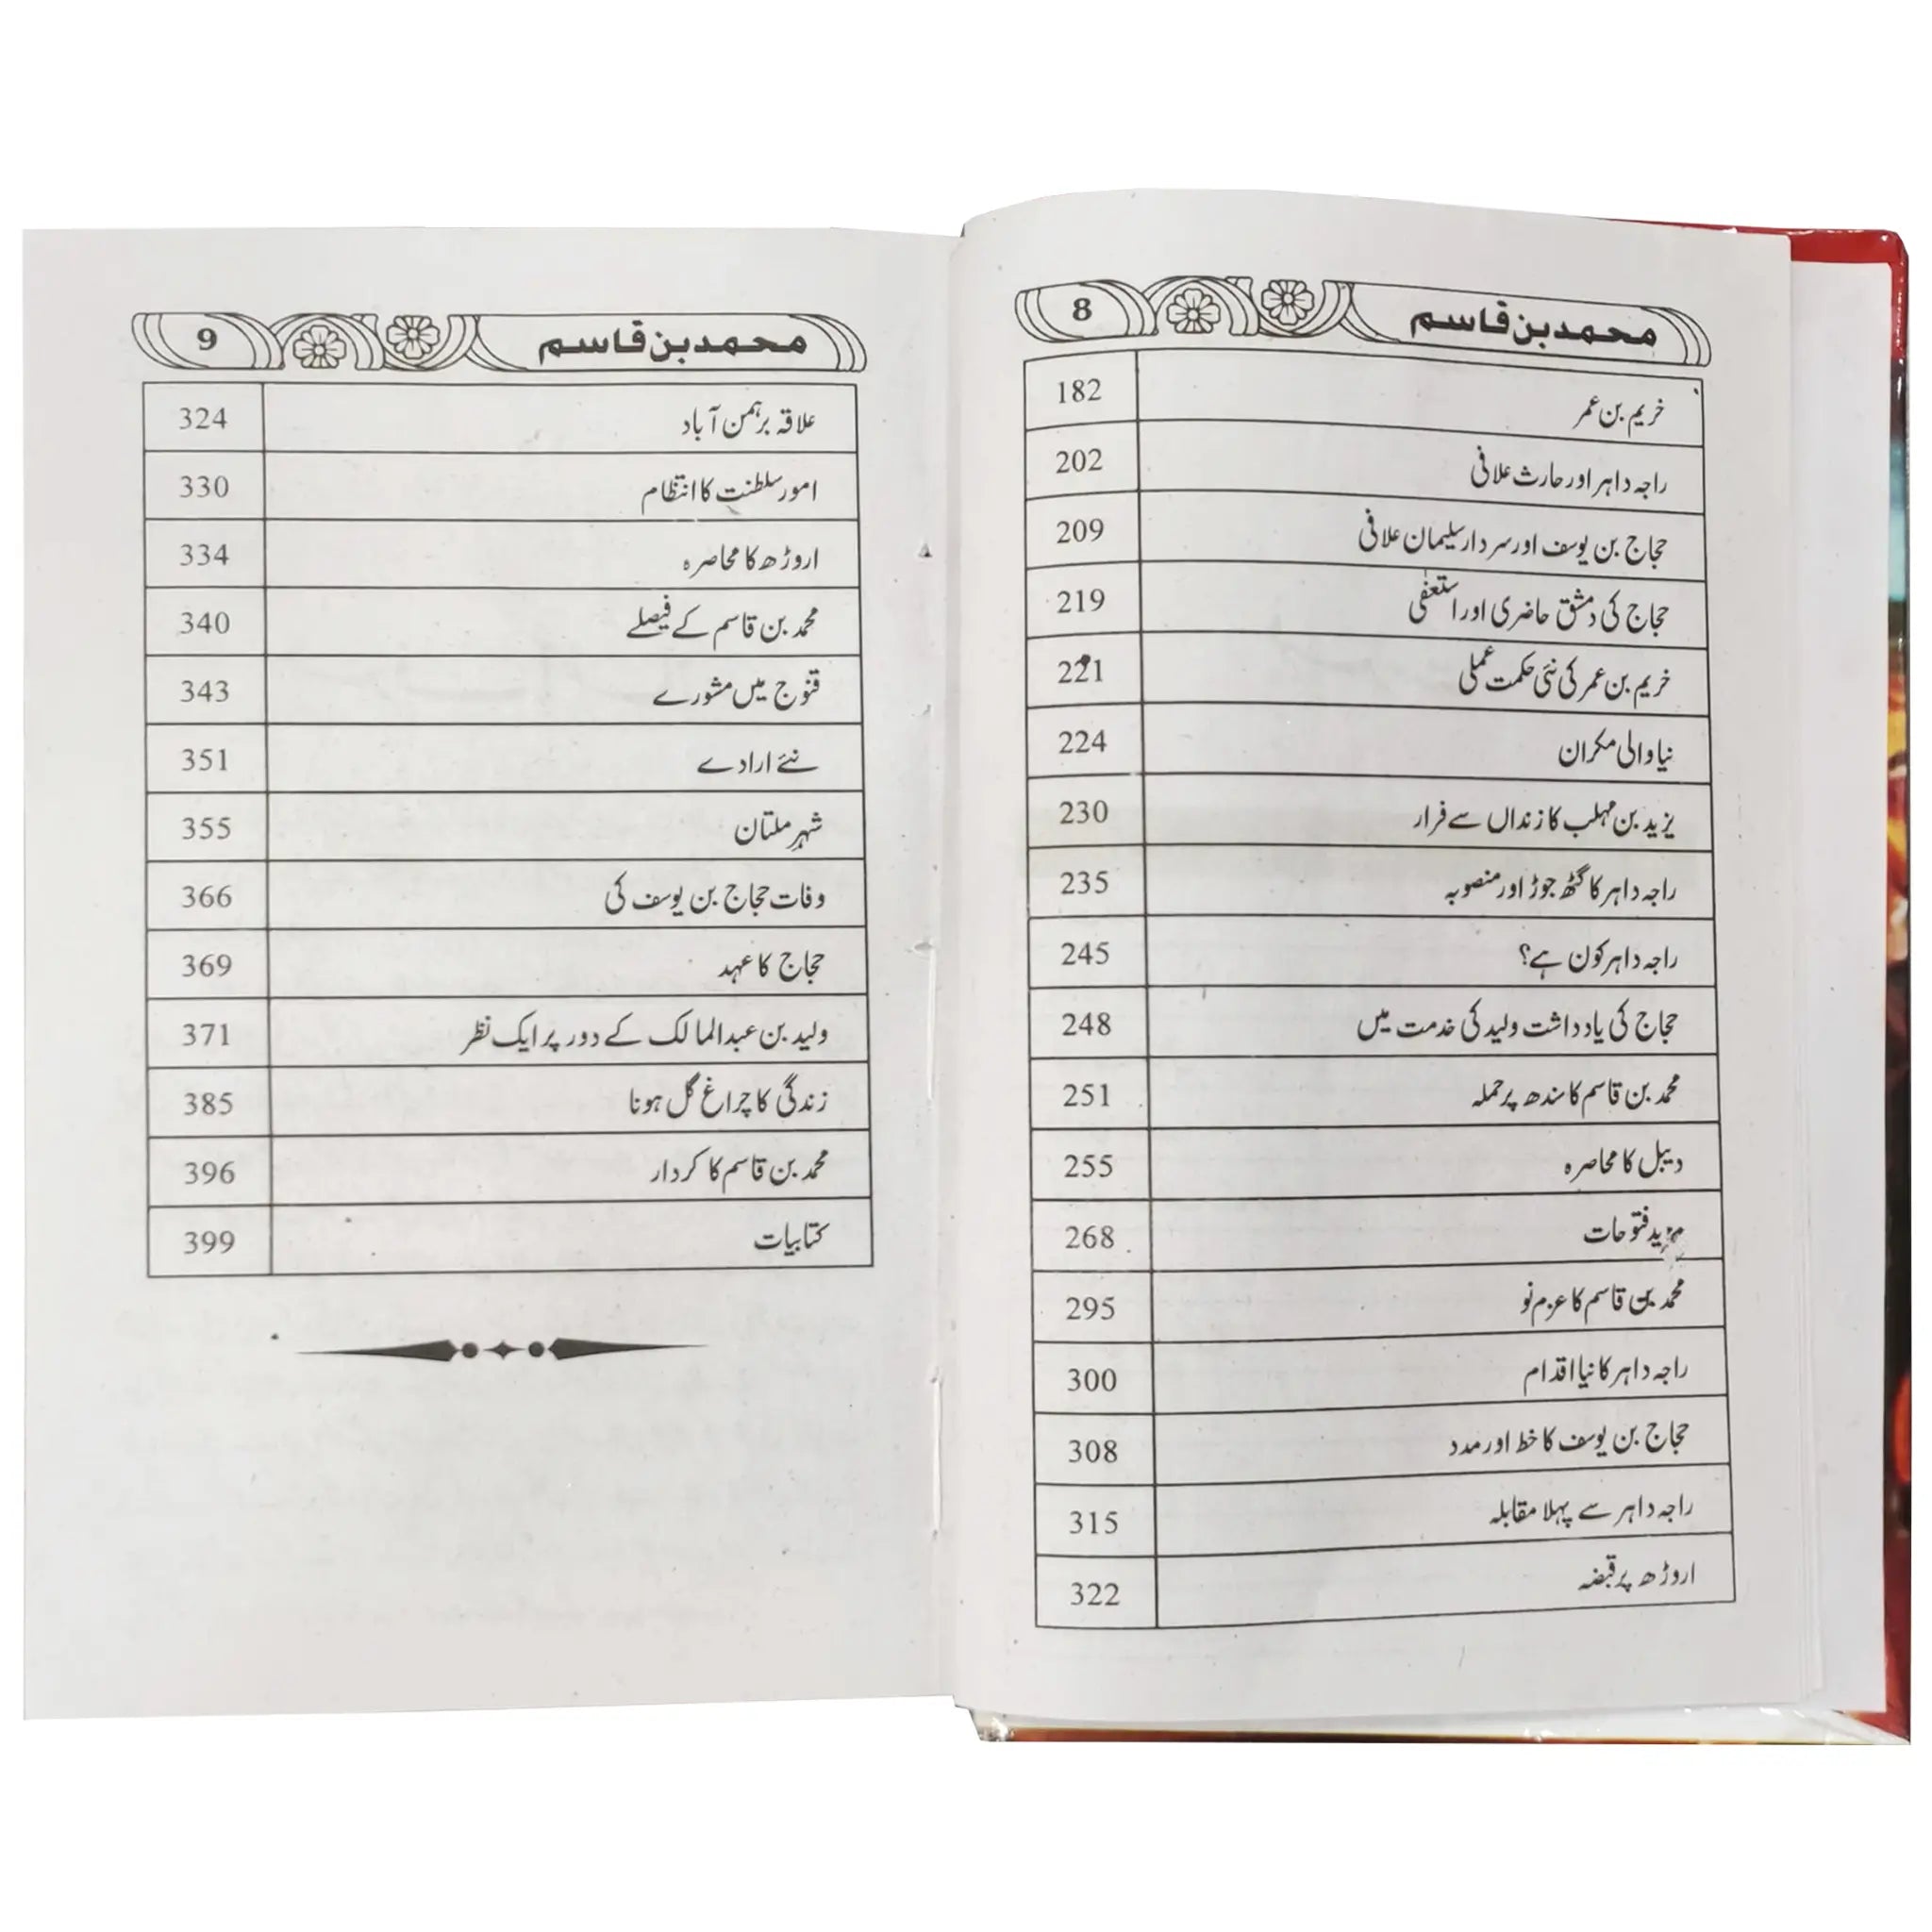 محمد بن قاسم 8
خریم بن عمر 182
راجہ داہر اور حارث علافی 202
حجاج بن یوسف اور سردار سلیمان علافی 209
حجاج کی دمشق حاضری اور استعفٰی 219
خریم بن عمر کی نئی حکمت عملی 221
نیا والی مکران 224
یزید بن مہلب کا زنداں سے فرار 230
راجہ داہر کا گٹھ جوڑ اور منصوبہ 235
راجہ داہر کون ہے؟ 245
حجاج کی یادداشت ولید کی خدمت میں 248
محمد بن قاسم کا سندھ پر حملہ 251
دیبل کا محاصرہ 255
مزید فتوحات 268
محمد بن قاسم کا عزم نو 295
راجہ داہر کا نیا اقدام 300
حجاج بن یوسف کا خط اور مدد 308
راجہ داہر سے پہلا مقابلہ 315
اروڑھ پر قبضہ 322
محمد بن قاسم 9
علاقہ برہمن آباد 324
امور سلطنت کا انتظام 330
اروڑھ کا محاصرہ 334
محمد بن قاسم کے فیصلے 340
قنوج میں مشورے 343
نئے ارادے 351
شہرِ ملتان 355
وفات حجاج بن یوسف کی 366
حجاج کا عہد 369
ولید بن عبدالمالک کے دور پر ایک نظر 371
زندگی کا چراغ گل ہونا 385
محمد بن قاسم کا کردار 396
کتابیات 399